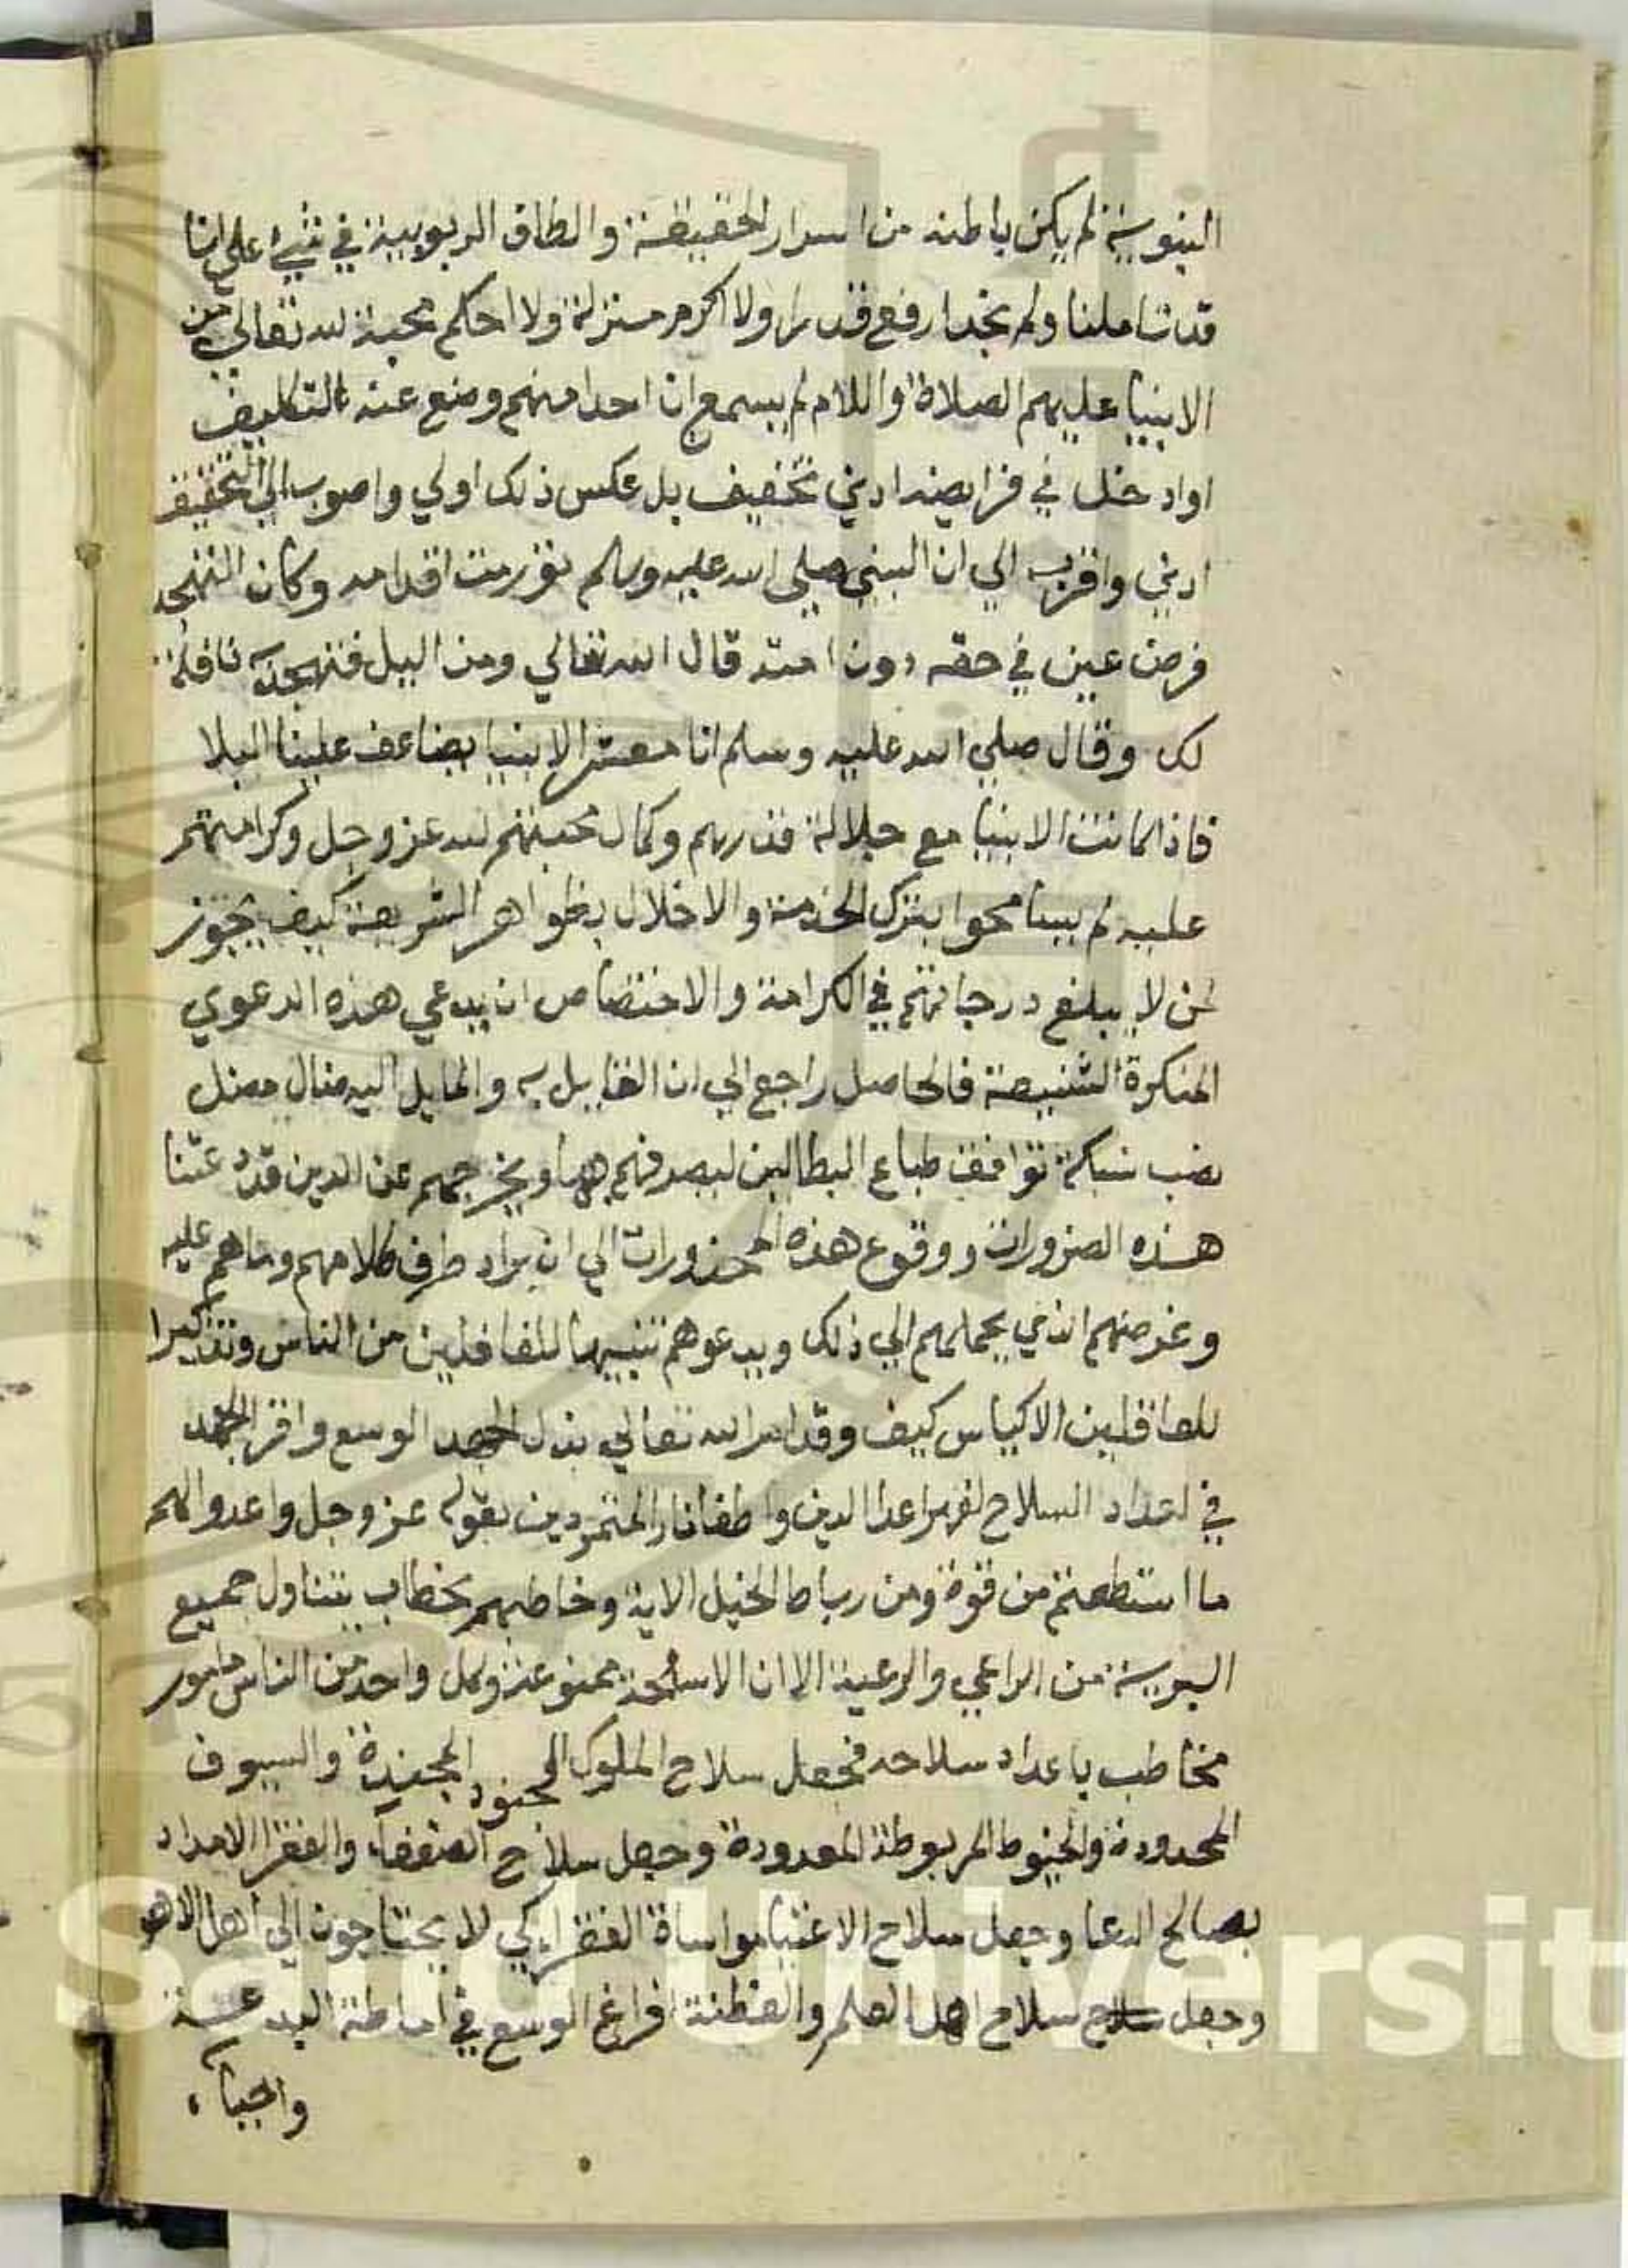 النبوية لم يكن باطنه من اسرار الحقيقة والطاف الربوبية في شيء علي انا
قد تاملنا ولم نجد ارفع قدرا ولا اكرم منزلة ولا احكم محبة لله تعالي من
الانبيا عليهم الصلاة والسلام لم يسمع ان احدا منهم وضع عنه التكليف
اوادخل في فرايضه ادني تخفيف بل عكس ذلك اولي واصوب الي التحقيق
ادني واقرب الي ان النبي صلي الله عليه وسلم تورمت اقدامه وكان التهجد
فرض عين في حقه دون امته قال الله تعالي ومن اليل فتهجد به نافلة
لك وقال صلي الله عليه وسلم انا معشر الانبيا يضاعف علينا البلا
فاذا كانت الانبيا مع جلالة قدرهم وكمال محبتهم لله عز وجل وكرامتهم
عليه لم يسامحوا بترك الخدمة والاخلال بظواهر الشريعة كيف يجوز
لمن لا يبلغ درجاتهم في الكرامة والاختصاص ان يدعي هذه الدعوي
المنكرة الشنيعة فالحاصل راجع الي ان القايل به والمايل اليه ضال مضل
نصب شبكة توافق طباع البطالين ليصرفهم بها ويخرجهم عن الدين قد دعتنا
هذه الضرورات ووقوع هذه المحذورات الي ايراد طرف كلامهم وما هم عليه
وغرضهم الذي يحملهم الي ذلك ويدعوهم تنبيها للغافلين من الناس وتذكيرا
للعاقلين الاكياس كيف وقد امر الله تعالي ببذل الجهد الوسع وافر الجهد
في اعداد السلاح لقهر اعدا الدين واطفا نار المتمردين بقوله عز وجل واعدوا لهم
ما استطعتم من قوة ومن رباط الخيل الاية وخاطبهم بخطاب يتناول جميع
البرية من الراعي والرعية الا ان الاسلحة متنوعة وكل واحد من الناس مامور
مخاطب باعداد سلاحه فجعل سلاح الملوك الجنود المجندة والسيوف
المحدودة والخيوط المربوطة المعدودة وجعل سلاح الضعفاء والفقرا الامداد
بصالح الدعا وجعل سلاح الاغنيا مواساة الفقراء كي لا يحتاجون الي اهل الاهو
وجعل سلاح سلاح اهل العلم والفطنة افراغ الوسع في اماطة البدعة
Saud Universit